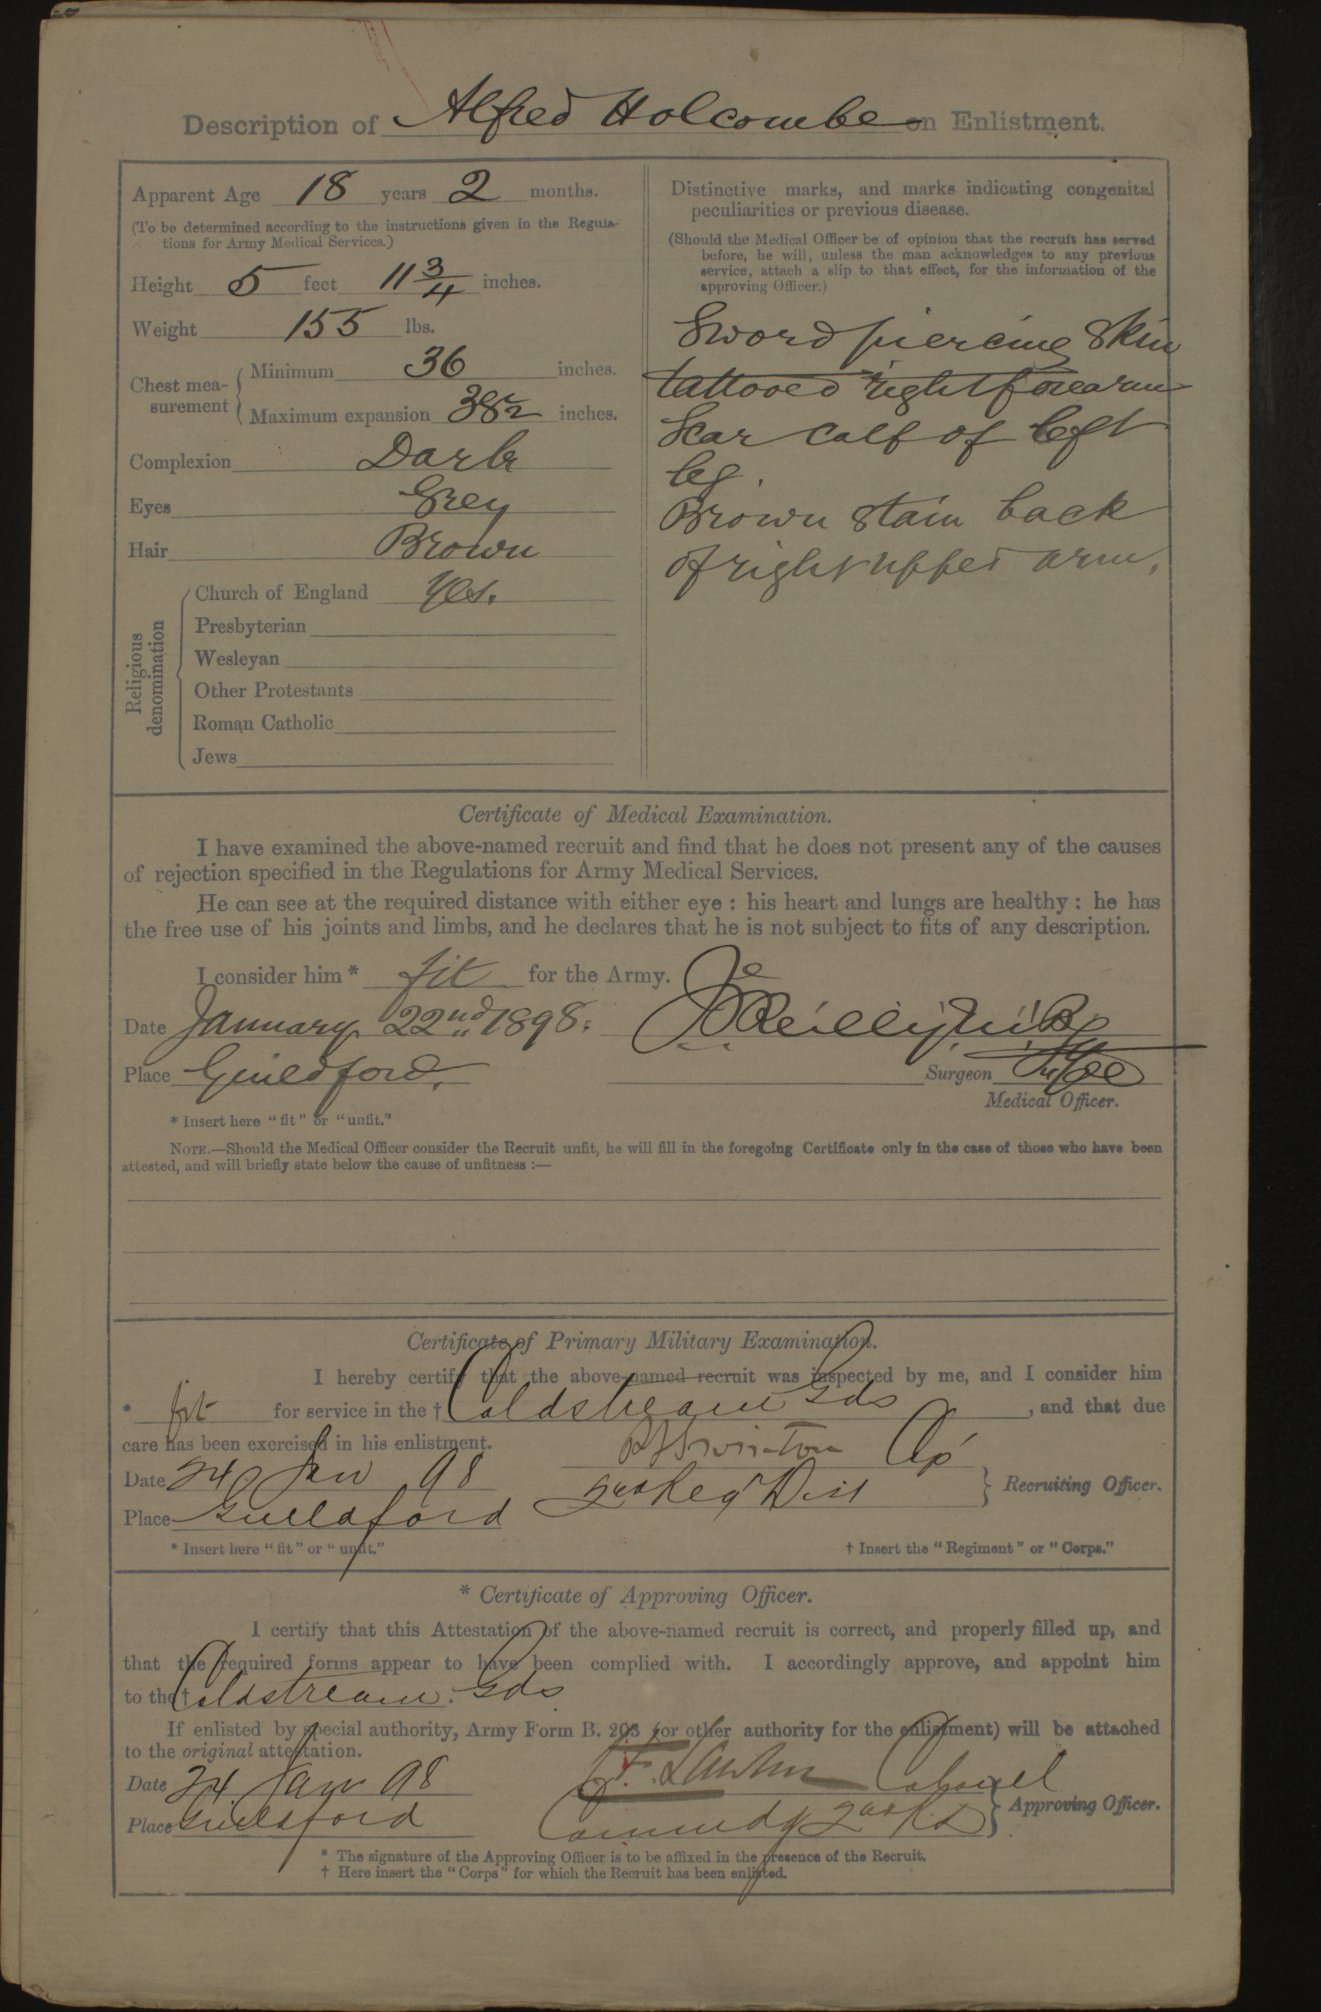 Description of Alfred Holcombe on Enlistment.
Apparent Age 18 years 2 months.
(To be determined according to the instructions given in the Regula-
tions for Army Medical Services.)
Height 5 feet 11 3/4 inches.
Weight 155 lbs.
Chest mea-
surement
Minimum 36 inches.
Maximum expansion 38½ inches.
Complexion Dark
Eyes Grey
Hair Brown
Religious
denomination
Church of England Yes.
Presbyterian
Wesleyan
Other Protestants
Roman Catholic
Jews
Distinctive marks, and marks indicating congenital
peculiarities or previous disease.
(Should the Medical Officer be of opinion that the recruit has served
before, he will, unless the man acknowledges to any previous
service, attach a slip to that effect, for the information of the
approving Officer.)
Sword piercing skin
tattooed right forearm
Scar calf of left
leg.
Brown stain back
of right upper arm.
Certificate of Medical Examination.
I have examined the above-named recruit and find that he does not present any of the causes
of rejection specified in the Regulations for Army Medical Services.
He can see at the required distance with either eye : his heart and lungs are healthy : he has
the free use of his joints and limbs, and he declares that he is not subject to fits of any description.
I consider him * fit for the Army.
Date January 22nd 1898.
Place Guildford.
Surgeon
Medical Officer.
* Insert here "fit" or "unfit."
NOTE.—Should the Medical Officer consider the Recruit unfit, he will fill in the foregoing Certificate only in the case of those who have been
attested, and will briefly state below the cause of unfitness :—
Certificate of Primary Military Examination.
I hereby certify that the above-named recruit was inspected by me, and I consider him
* fit for service in the † Coldstream Gds , and that due
care has been exercised in his enlistment.
Date 24 Jan 98
Place Guildford
Recruiting Officer.
* Insert here "fit" or "unfit."
† Insert the "Regiment" or "Corps."
* Certificate of Approving Officer.
I certify that this Attestation of the above-named recruit is correct, and properly filled up, and
that the required forms appear to have been complied with. I accordingly approve, and appoint him
to the † Coldstream Gds
If enlisted by special authority, Army Form B. 203 (or other authority for the enlistment) will be attached
to the original attestation.
Date 24. Jan 98 Colonel
Place Guildford
Approving Officer.
* The signature of the Approving Officer is to be affixed in the presence of the Recruit.
† Here insert the "Corps" for which the Recruit has been enlisted.